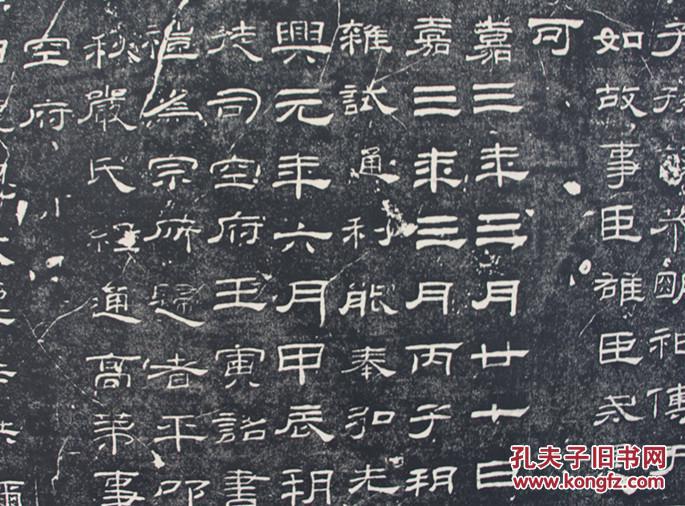 子孫敬恭明祀傳于
如故事臣雄臣戒
可
嘉三年三月廿七日
嘉三年三月丙子朔
雜試通利能奉弘先
興元年六月甲辰朔
徒司空府壬寅詔書
禮為宗所歸者平叩
秋嚴氏經通高第事
空府
孔夫子旧书网
www.kongfz.com